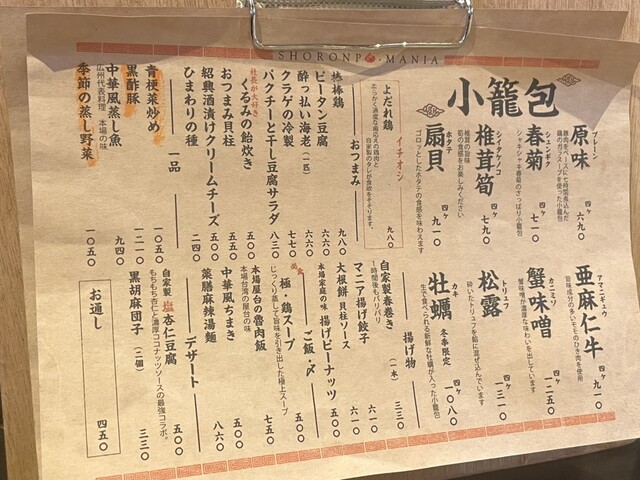 SHORONPO・MANIA
小籠包
原味
プレーン
四ケ
六九〇
春菊
シュンギク
シャキシャキ春菊のさっぱり小籠包
四ケ
七一〇
椎茸筍
シイタケタケノコ
椎茸の旨味
筍の食感をお楽しみください
四ケ
七九〇
扇貝
ホタテ
ゴロッとしたホタテの食感を味わえます
四ケ
九一〇
亜麻仁牛
アマニギュウ
四ケ
九一〇
蟹味噌
カニミソ
蟹味噌が濃厚な味わいを出しています
四ケ
一二五〇
松露
トリュフ
砕いたトリュフを餡に混ぜ込んでいます
四ケ
一三一〇
牡蠣
カキ
冬季限定
生で食べられる新鮮な牡蠣が入った小籠包
四ケ
一〇八〇
よだれ鶏
イチオシ
九八〇
おつまみ
棒棒鶏
九八〇
ピータン豆腐
六六〇
酔っ払い海老(二匹)
六六〇
クラゲの冷製
七七〇
パクチーと干し豆腐サラダ
八三〇
社長が大好き
くるみの飴炊き
五五〇
おつまみ貝柱
五五〇
紹興酒漬けクリームチーズ
五〇〇
ひまわりの種
二四〇
一品
青梗菜炒め
一〇五〇
黒酢豚
一二一〇
中華風蒸し魚
広州代表料理 本場の味
九四〇
季節の蒸し野菜
一〇五〇
揚げ物
自家製春巻き(一本)
1時間後もパリパリ
三三〇
マニア揚げ餃子
六一〇
大根餅 貝柱ソース
六一〇
本場家庭の味 揚げピーナッツ
五〇〇
ご飯・〆
極・鶏スープ
じっくり蒸して旨味を引き出した極上スープ
七五〇
本場屋台の魯肉飯
本場台湾の屋台の味
五〇〇
中華風ちまき
五〇〇
薬膳麻辣湯麺
八六〇
デザート
自家製 塩杏仁豆腐
もちもち杏仁と濃厚ココナッツソースの最強コラボ。
五〇〇
黒胡麻団子(二個)
三三〇
お通し
四五〇